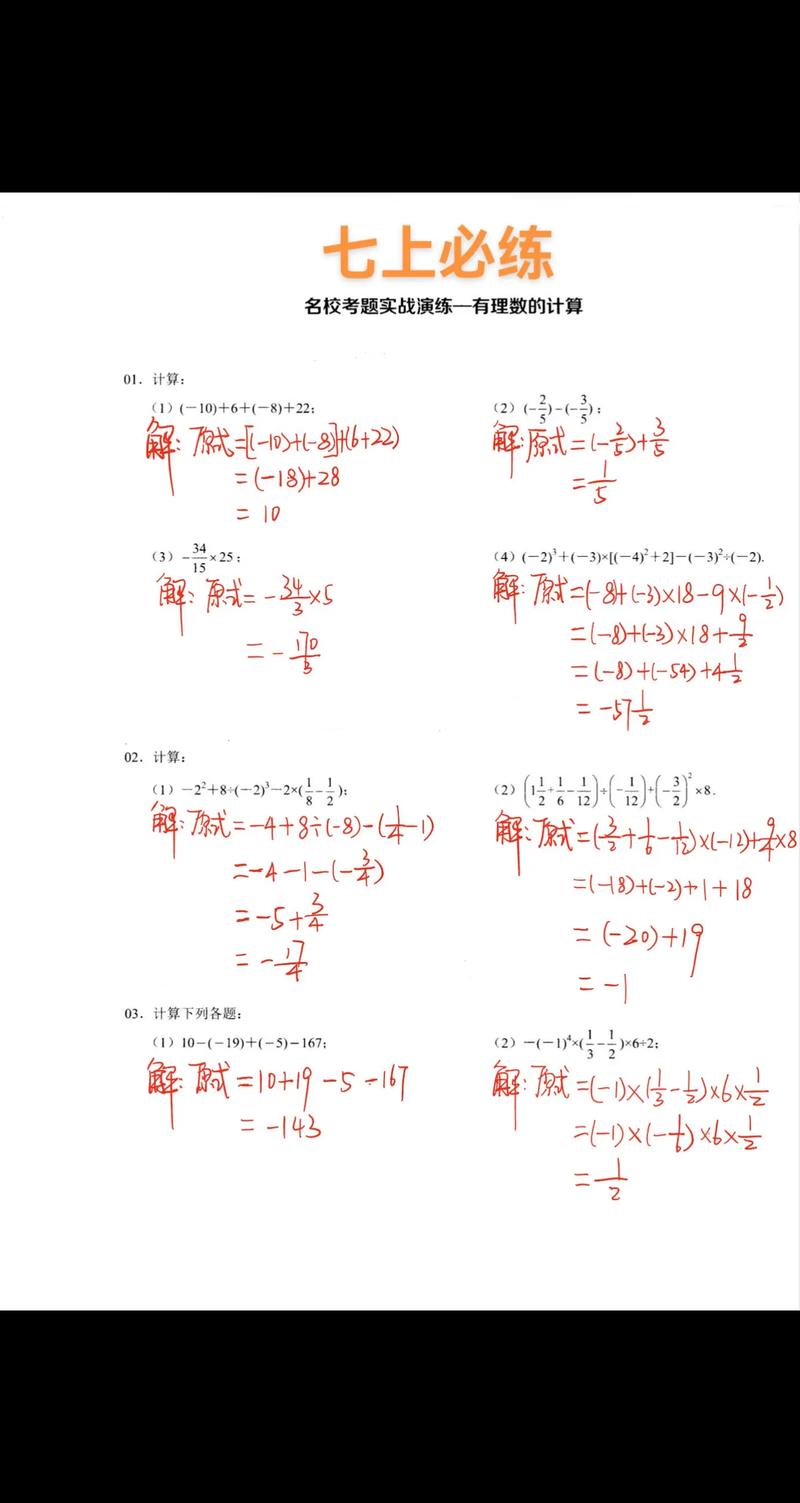 七上必练
名校考题实战演练—有理数的计算
01. 计算:
(1) (-10)+6+(-8)+22;
解: 原式=[(-10)+(-8)]+(6+22)
=(-18)+28
= 10
(2) (-2/5)-(-3/5);
解: 原式=(-2/5)+3/5
=1/5
(3) -34/15×25;
解: 原式= -34/3×5
= -170/3
(4) (-2)³+(-3)×[(-4)²+2]-(-3)²÷(-2).
解: 原式=(-8)+(-3)×18-9×(-1/2)
=(-8)+(-3)×18+9/2
=(-8)+(-54)+4 1/2
= -57 1/2
02. 计算:
(1) -2²+8÷(-2)³-2×(1/8-1/2);
解: 原式=-4+8÷(-8)-(1/4-1)
=-4-1-(-3/4)
=-5+3/4
= -17/4
(2) (1 1/2+1/6-1/12)÷(-1/12)+(-3/2)²×8.
解: 原式=(3/2+1/6-1/12)×(-12)+9/4×8
=(-18)+(-2)+1+18
= (-20)+19
= -1
03. 计算下列各题:
(1) 10-(-19)+(-5)-167;
解: 原式=10+19-5-167
= -143
(2) -(-1)⁴×(1/3-1/2)×6÷2;
解: 原式=(-1)×(1/3-1/2)×6×1/2
=(-1)×(-1/6)×6×1/2
=1/2